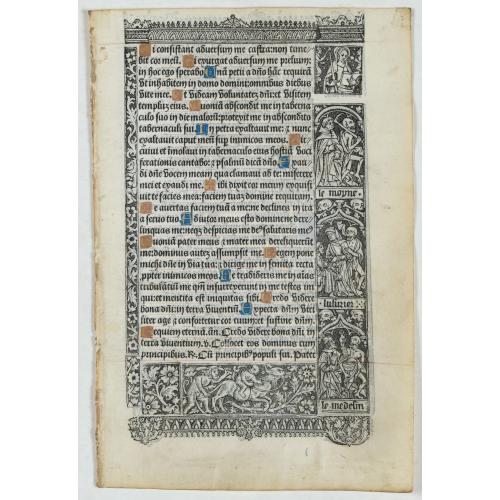 Si consistant adversum me castra: non time
bit cor meū. Si exurgat adversum me prelium:
in hoc ego sperabo. Unā petii a dño hāc requirā
Ut inhabitem in domo domini: omnibus diebus
vite mee. Ut videam voluntatē dñi: et visitem
templū eius. Quoniā abscondit me in taberna
culo suo in die maloꝝ: protexit me in abscondito
tabernaculi sui. In petra exaltauit me: ⁊ nunc
exaltauit caput meū sup inimicos meos. Cir
cuiui et imolaui in tabernaculo eius hostiā voci
ferationis cantabo: ⁊ psalmū dicā dño. Exau
di dñe vocem meam qua clamaui ad te: miserere
mei et exaudi me. Tibi dixit cor meum exquisi
uit te facies mea: faciem tuaꝫ domine requiram.
Ne auertas faciem tuā a me: ne declines in ira
a seruo tuo. Adiutor meus esto domine ne dere
linquas me: neqꝫ despicias me deꝰ salutaris meꝰ
Quoniā pater meus ⁊ mater mea dereliquerūt
me: dominus autez assumpsit me. Legem pone
michi dñe in via tua: ⁊ dirige me in semita recta
ꝓpter inimicos meos. Ne tradideris me in aīas
tribulātiū me qm̄ insurrexerunt in me testes ini
qui: et mentita est iniquitas sibi. Credo videre
bona dñi: in terra viuentiū. Expecta dñm viri
liter age ⁊ confortetur cor tuum: et sustine dñm.
Requiem eternā. añ. Credo videre bona dñi in
terra viuentium. v. Collocet eos dominus cum
principibus. R. Cū principibꝰ populi sui. Pater
le moyne.
lusurier
le medecin